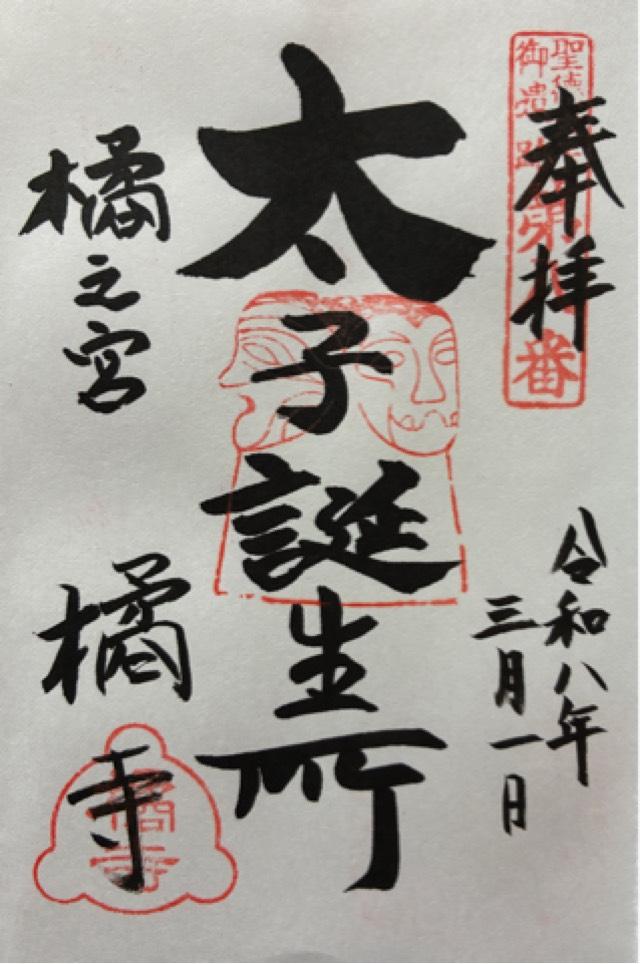 奉拝
聖徳
御遺跡
第八番
令和八年
三月一日
太子誕生所
橘之宮
橘寺
橘寺